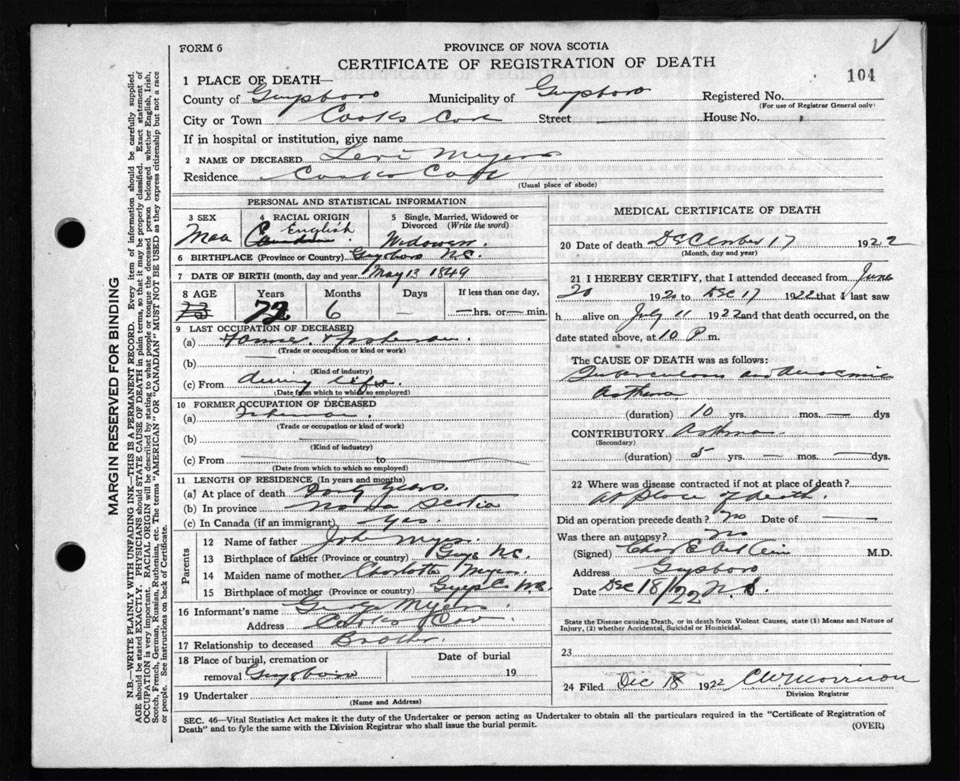 FORM 6
PROVINCE OF NOVA SCOTIA
CERTIFICATE OF REGISTRATION OF DEATH
104
1 PLACE OF DEATH—
County of Guysboro Municipality of Guysboro Registered No.
(For use of Registrar General only)
City or Town Cooks Cove Street — House No.
If in hospital or institution, give name
2 NAME OF DECEASED Levi Myers
Residence Cooks Cove
(Usual place of abode)
PERSONAL AND STATISTICAL INFORMATION
3 SEX
4 RACIAL ORIGIN
English
5 Single, Married, Widowed or Divorced (Write the word)
6 BIRTHPLACE (Province or Country) Guysboro
7 DATE OF BIRTH (month, day and year) May 13 1849
8 AGE Years Months Days If less than one day,
73 72 6 — —hrs. or— min.
9 LAST OCCUPATION OF DECEASED
(a) Farmer & fisherman
(Trade or occupation or kind of work)
(b)
(Kind of industry)
(c) From during life
(Date from which to which so employed)
10 FORMER OCCUPATION OF DECEASED
(a) Fisherman
(Trade or occupation or kind of work)
(b)
(Kind of industry)
(c) From to
(Date from which to which so employed)
11 LENGTH OF RESIDENCE (In years and months)
(a) At place of death years
(b) In province Nova Scotia
(c) In Canada (if an immigrant) yes.
Parents
12 Name of father John Myers
13 Birthplace of father (Province or country) Guys
14 Maiden name of mother Charlotte Myers
15 Birthplace of mother (Province or country)
16 Informant's name George Myers
Address Cooks Cov
17 Relationship to deceased Brother
18 Place of burial, cremation or removal Guysboro
Date of burial
19
19 Undertaker
(Name and Address)
MEDICAL CERTIFICATE OF DEATH
20 Date of death December 17 1922
(Month, day and year)
21 I HEREBY CERTIFY, that I attended deceased from June
20 1920 to Dec 17 1922 that I last saw
h alive on July 11 1922 and that death occurred, on
date stated above, at 10 P m.
The CAUSE OF DEATH was as follows:
Tuberculosis and
(duration) 10 yrs. — mos. — dys
CONTRIBUTORY Asthma
(Secondary)
(duration) 5 yrs. — mos. — dys.
22 Where was disease contracted if not at place of death?
At place of death.
Did an operation precede death? no Date of —
Was there an autopsy? No
(Signed) M.D.
Address Guysboro
Date Dec 18/1922 N. S.
State the Disease causing Death, or in death from Violent Causes, state (1) Means and Nature of
Injury, (2) whether Accidental, Suicidal or Homicidal.
23
24 Filed Dec 18 1922 C W Morrison
Division Registrar
SEC. 46—Vital Statistics Act makes it the duty of the Undertaker or person acting as Undertaker to obtain all the particulars required in the "Certificate of Registration of
Death" and to fyle the same with the Division Registrar who shall issue the burial permit.
(OVER)
MARGIN RESERVED FOR BINDING
N.B.—WRITE PLAINLY WITH UNFADING INK—THIS IS A PERMANENT RECORD. Every item of information should be carefully supplied.
AGE should be stated EXACTLY. PHYSICIANS should STATE CAUSE OF DEATH in plain terms, so that it may be properly classified. Exact statement of
OCCUPATION is very important. RACIAL ORIGIN will be described by stating to what people or tongue the deceased person belonged whether English, Irish,
Scotch, French, German, Russian, Ruthenian, etc. The terms "AMERICAN" OR "CANADIAN" MUST NOT BE USED as they express citizenship but not a race
or people. See instructions on back of Certificate.